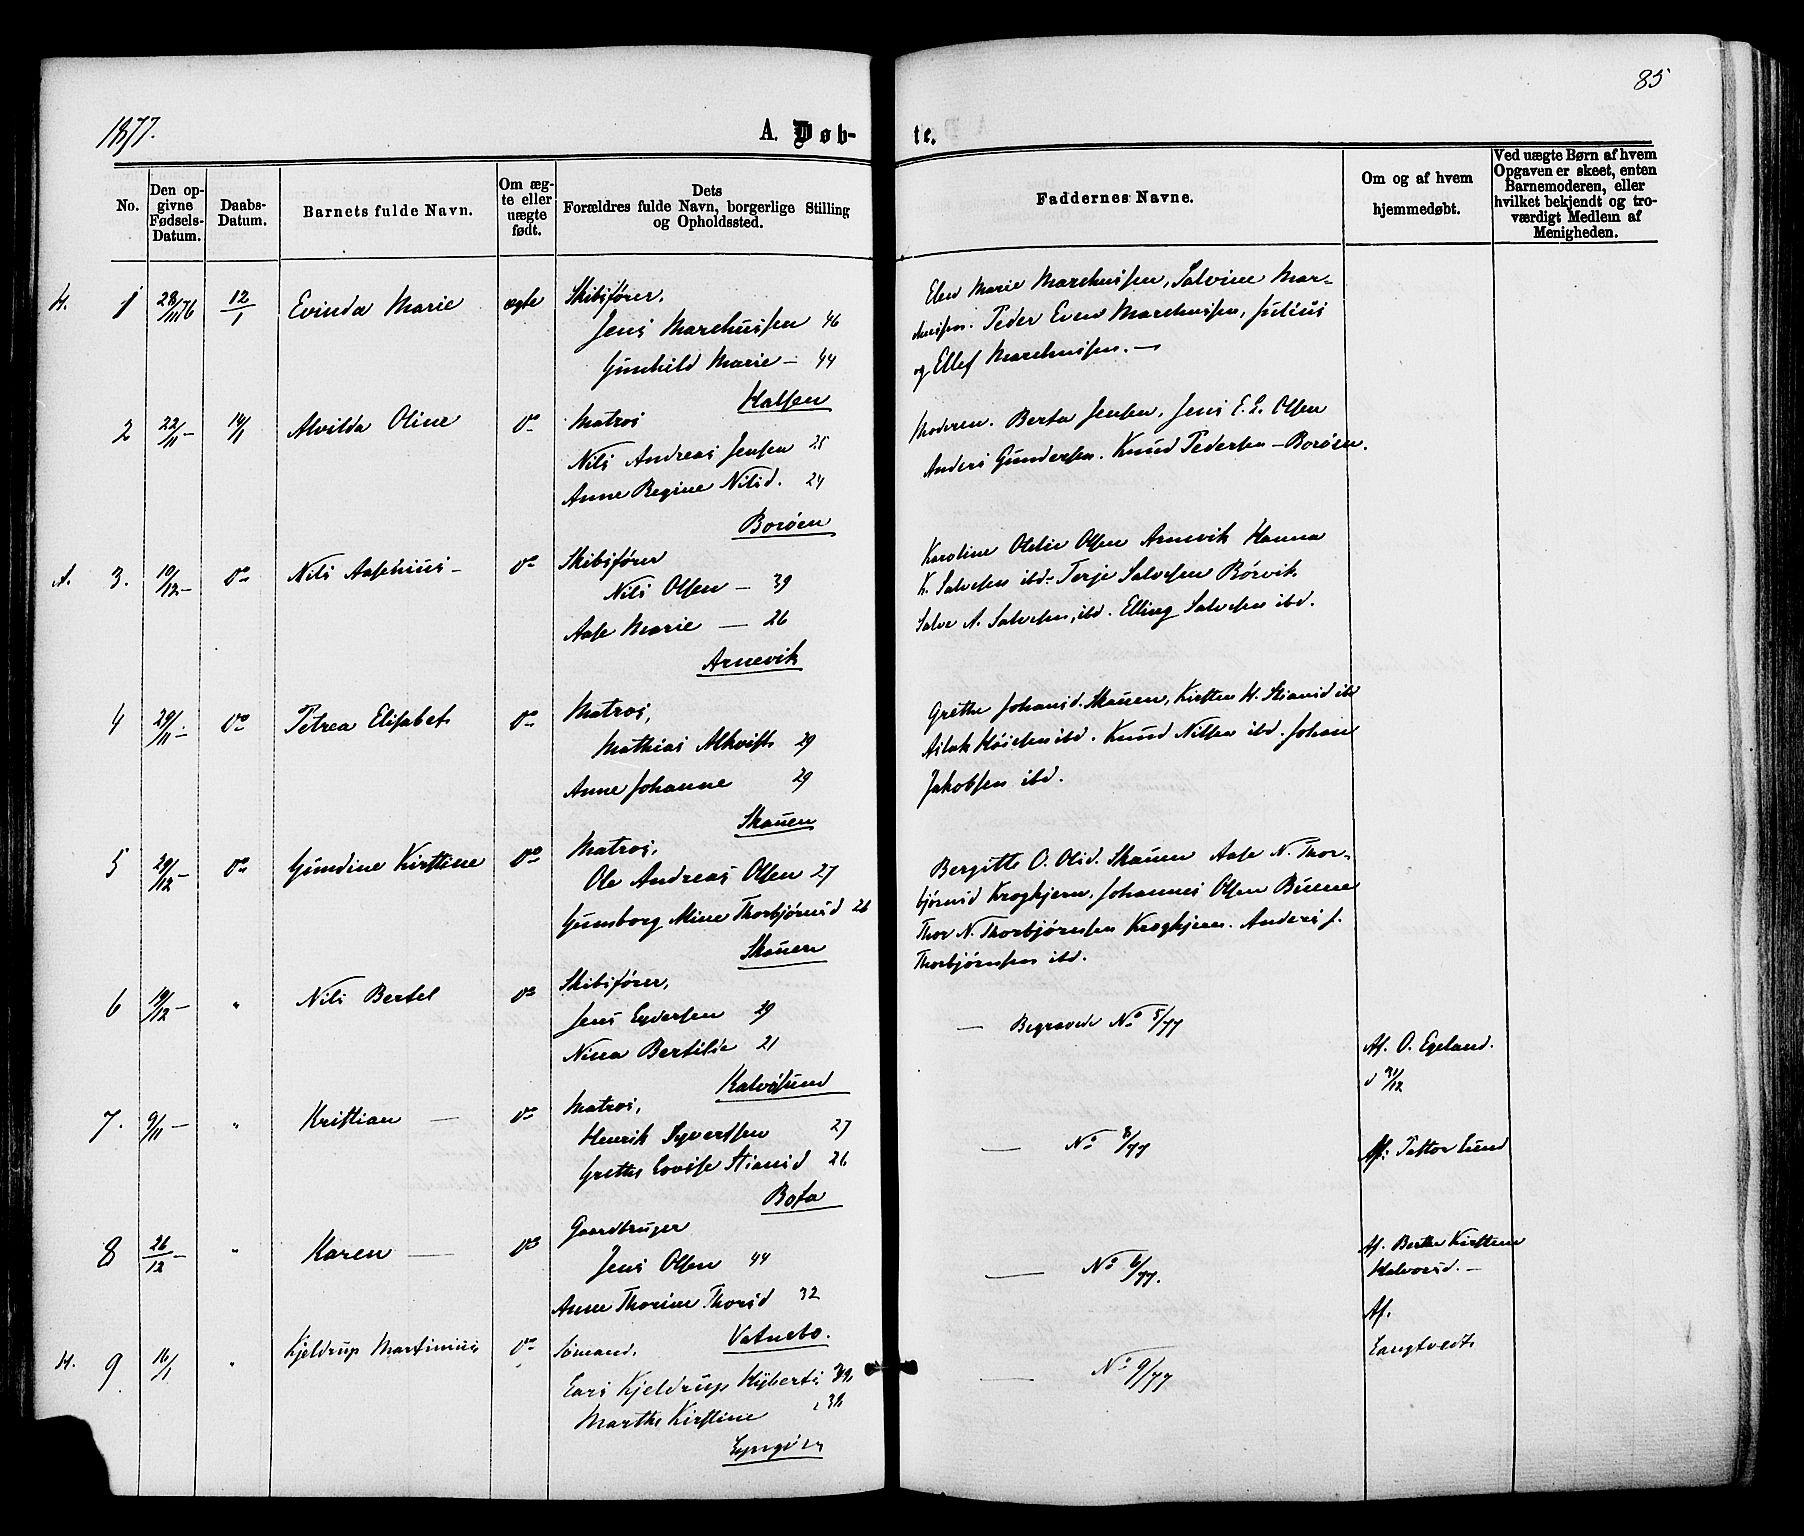 85
1877.
A. Døb-
te.
No.
Den op-
givne
Fødsels-
Datum.
Daabs-
Datum.
Barnets fulde Navn.
Om æg-
te eller
uægte
født.
Dets
Forældres fulde Navn, borgerlige Stilling
og Opholdssted.
Faddernes Navne.
Om og af hvem
hjemmedøbt.
Ved uægte Børn af hvem
Opgaven er skeet, enten
Barnemoderen, eller
hvilket bekjendt og tro-
værdigt Medlem af
Menigheden.
H. 1 28/11 76 12/1 Evinda Marie ægte Skibsfører,
Jens Marchussen 46
Gunhild Marie — 44
Halsen
Elen Marie Marchussen, Salvine Mar-
chussen. Peder Even Marchussen, Julius
og Ellef Marchussen. —
2 22/11 — 14/1 Alvilda Oline do Matros
Nils Andreas Jensen 25
Anne Regine Nilsd. 24
Borøen
Moderen. Berta Jensen, Jens E. E. Olsen
Anders Gundersen. Knud Pedersen — Borøen.
A. 3. 10/12 — do Nils Aasenius — do Skibsfører
Nils Olsen — 39
Aase Marie — 26
Arnevik
Karoline Otelie Olsen Arnevik Hanna
K. Salvesen ibd. Terje Salvesen Børvik
Salve A. Salvesen, ibd. Elling Salvesen ibd.
4 29/11 — do Petrea Elisabet do Matros,
Mathias Alkvist 29
Anne Johanne 29
Skauen
Grethe Johansd. Skauen, Kirsten H. Stiansd ibd
Aslak Høiesen ibd. Knud Nilsen ibd. Johan
Jakobsen ibd.
5 29/12 — do Gundine Kirstine do Matros,
Ole Andreas Olsen 27
Gunborg Mine Thorbjørnsd 26
Skauen
Bergitte O. Olsd. Skauen Aase N. Thor-
bjørnsd Krogkjern, Johannes Olsen Bunne
Thor N. Thorbjørnsen Krogkjern. Anders J.
Thorbjørnsen ibd.
6 19/12 — " Nils Bertel do Skibsfører,
Jens Syversen 29
Nina Bertilsd 21
Kalvøsund
— Begravede No 5/77
Af. O. Egeland.
d 31/12
7. 9/11 — " Kristian — do Matros,
Henrik Syvertsen 27
Grethe Lovise Stiansd 26
Bota
— No 8/77
Af: Pastor Lund
8 26/12 — " Karen — do Gaardbruger
Jens Olsen 44
Anne Thorine Thorsd 32
Vatnebo.
— No 6/77.
Af. Berthe Kirstine
Halvorsd. —
H. 9 16/1 " Kjeldrup Martinius do Sømand,
Lars Kjeldrup Hyberts
Marthe Kirstine
Lyngør
— No 9/77
Af.
Langtvedt